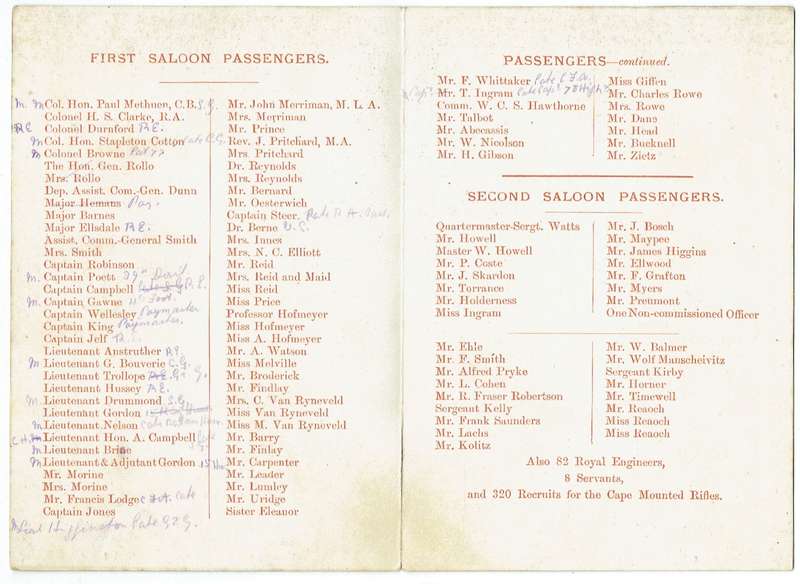 FIRST SALOON PASSENGERS.
M. M Col. Hon. Paul Methuen, C.B. S.G.
Colonel H. S. Clarke, R.A.
RE Colonel Durnford R.E.
M Col. Hon. Stapleton Cotton late C.G.
M Colonel Browne
The Hon. Gen. Rollo
Mrs. Rollo
Dep. Assist. Com.-Gen. Dunn
Major Hemans Pay.
Major Barnes
Major Ellsdale R.E.
Assist. Comm.-General Smith
Mrs. Smith
Captain Robinson
M. Captain Poett
Captain Campbell R.E.
M. Captain Gawne Foot.
Captain Wellesley Paymaster
Captain King Paymaster.
Captain Jelf R.E.
Lieutenant Anstruther R.E.
M Lieutenant G. Bouverie C.G.
Lieutenant Trollope G.
Lieutenant Hussey R.E.
M. Lieutenant Drummond S.G.
Lieutenant Gordon
M Lieutenant Nelson
Lieutenant Hon. A. Campbell
M Lieutenant Brine
M Lieutenant & Adjutant Gordon 15
Mr. Morine
Mrs. Morine
Mr. Francis Lodge late
Captain Jones
Higginston late
Mr. John Merriman, M. L. A.
Mrs. Merriman
Mr. Prince
Rev. J. Pritchard, M.A.
Mrs. Pritchard
Dr. Reynolds
Mrs. Reynolds
Mr. Bernard
Mr. Oesterwich
Captain Steer. late R.A.
Dr. Berne
Mrs. Innes
Mrs. N. C. Elliott
Mr. Reid
Mrs. Reid and Maid
Miss Reid
Miss Price
Professor Hofmeyer
Miss Hofmeyer
Miss A. Hofmeyer
Mr. A. Watson
Miss Melville
Mr. Broderick
Mr. Findlay
Mrs. C. Van Ryneveld
Miss Van Ryneveld
Miss M. Van Ryneveld
Mr. Barry
Mr. Finlay
Mr. Carpenter
Mr. Leader
Mr. Lumley
Mr. Uridge
Sister Eleanor
PASSENGERS—continued.
Mr. F. Whittaker late
Capt. Mr. T. Ingram late Capt. 78 High.
Comm. W. C. S. Hawthorne
Mr. Talbot
Mr. Abecassis
Mr. W. Nicolson
Mr. H. Gibson
Miss Giffen
Mr. Charles Rowe
Mrs. Rowe
Mr. Dane
Mr. Head
Mr. Bucknell
Mr. Zietz
SECOND SALOON PASSENGERS.
Quartermaster-Sergt. Watts
Mr. Howell
Master W. Howell
Mr. P. Coste
Mr. J. Skardon
Mr. Torrance
Mr. Holderness
Miss Ingram
Mr. J. Bosch
Mr. Maypee
Mr. James Higgins
Mr. Ellwood
Mr. F. Grafton
Mr. Myers
Mr. Preumont
One Non-commissioned Officer
Mr. Ehle
Mr. F. Smith
Mr. Alfred Pryke
Mr. L. Cohen
Mr. R. Fraser Robertson
Sergeant Kelly
Mr. Frank Saunders
Mr. Lachs
Mr. Kolitz
Mr. W. Balmer
Mr. Wolf Manscheivitz
Sergeant Kirby
Mr. Horner
Mr. Timewell
Mr. Reaoch
Miss Reaoch
Miss Reaoch
Also 82 Royal Engineers,
8 Servants,
and 320 Recruits for the Cape Mounted Rifles.